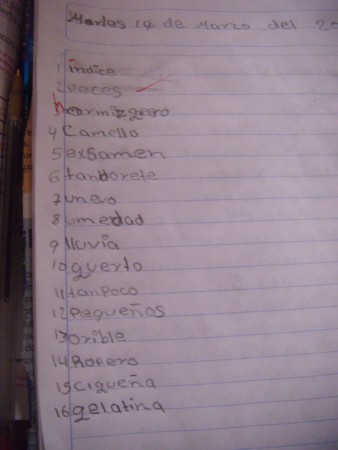 Martes 19 de Marzo del 20
1 índice
2 peces
3 hormizgero
4 Camello
5 exsamen
6 tanborete
7 unevo
8 umedad
9 lluvia
10 guerto
11 tanpoco
12 Pequeños
13 orible
14 Ropero
15 cigueña
16 gelatina